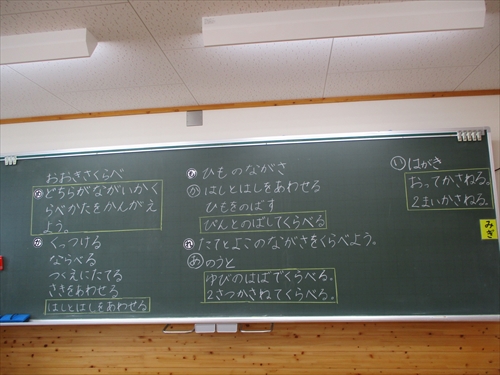 おおきさくらべ
どちらがながいかく
らべかたをかんがえ
よう。
か くっつける
ならべる
つくえにたてる
さきをあわせる
はしとはしをあわせる
ひものながさ
か はしとはしをあわせる
ひもをのばす
ぴんとのばしてくらべる
れ たてとよこのながさをくらべよう。
あ のうと
ゆびのはばでくらべる。
2さつかさねてくらべる。
い はがき
おってかさねる。
2まいかさねる。
みぎ